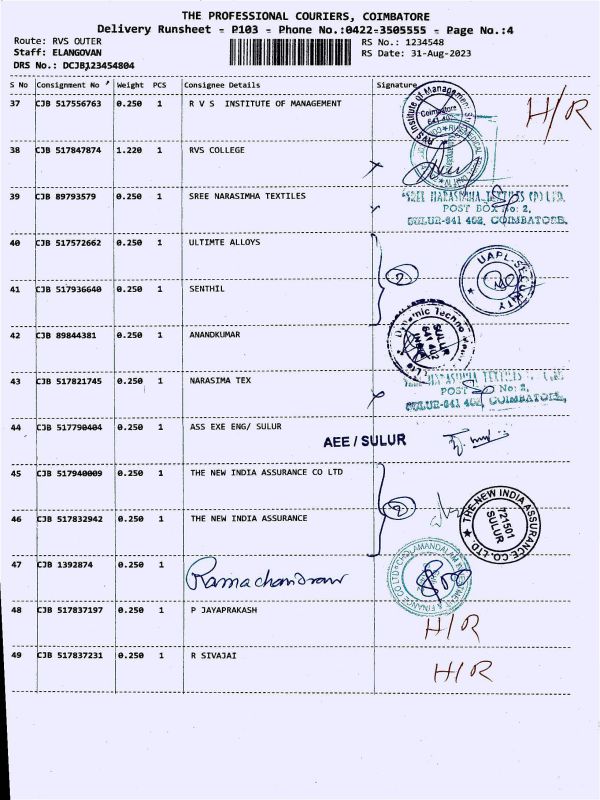 THE PROFESSIONAL COURIERS, COIMBATORE
Delivery Runsheet - P103 - Phone No.:0422-3505555 - Page No.:4
Route: RVS OUTER
RS No.: 1234548
Staff: ELANGOVAN
RS Date: 31-Aug-2023
DRS No.: DCJB123454804
S No Consignment No Weight PCS Consignee Details Signature
37 CJB 517556763 0.250 1 R V S INSTITUTE OF MANAGEMENT H/R
RVS Institute of Management
Coimbatore
641 402
38 CJB 517847874 1.220 1 RVS COLLEGE
39 CJB 89793579 0.250 1 SREE NARASIMHA TEXTILES
SREE NARASIMHA TEXTILES (P) LTD.
POST BOX No: 2,
SULUR-641 402, COIMBATORE.
40 CJB 517572662 0.250 1 ULTIMTE ALLOYS
2
UAPL-SECURITY
41 CJB 517936640 0.250 1 SENTHIL
Dynamic Techno
SULUR
641 402
INDIA
42 CJB 89844381 0.250 1 ANANDKUMAR
43 CJB 517821745 0.250 1 NARASIMA TEX
POST No: 2,
SULUR-641 402, COIMBATORE.
44 CJB 517790404 0.250 1 ASS EXE ENG/ SULUR
AEE / SULUR
45 CJB 517940009 0.250 1 THE NEW INDIA ASSURANCE CO LTD
2
THE NEW INDIA ASSURANCE CO.LTD.
721501
SULUR
46 CJB 517832942 0.250 1 THE NEW INDIA ASSURANCE
47 CJB 1392874 0.250 1 Ramachandran
CHOLAMANDALAM INVESTMENT & FINANCE CO LTD
48 CJB 517837197 0.250 1 P JAYAPRAKASH H/R
49 CJB 517837231 0.250 1 R SIVAJAI H/R